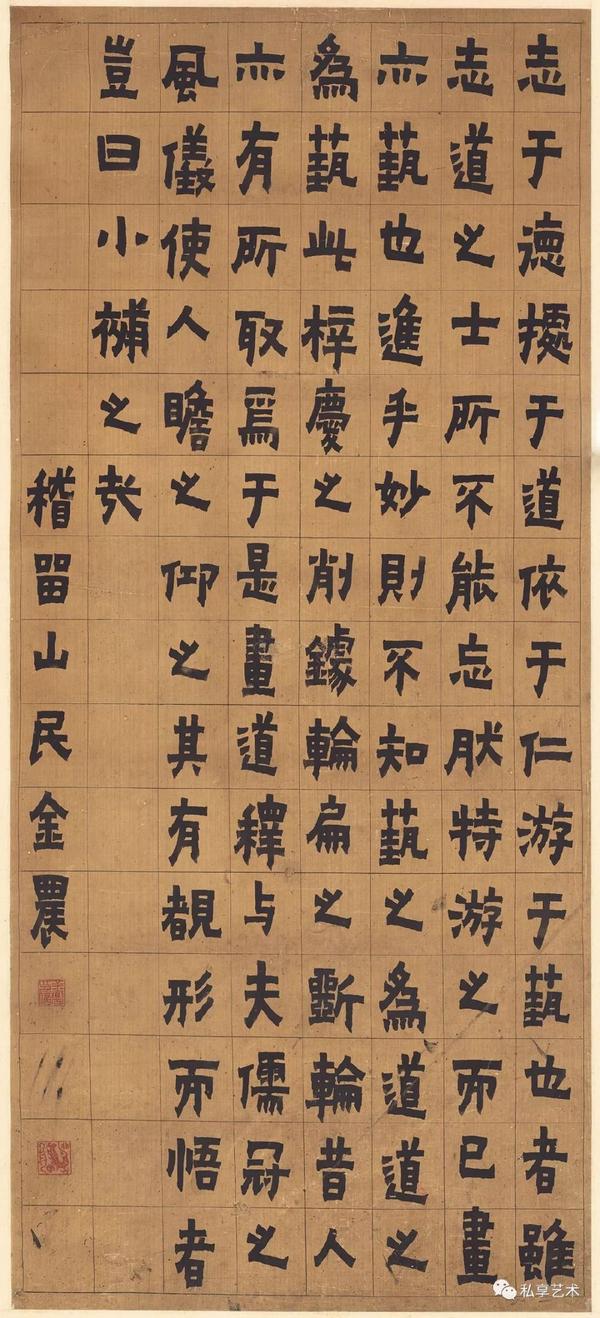 志于德據于道依于仁游于藝也者雖
志道之士所不能忘肰特游之而已畫
亦藝也進乎妙則不知藝之為道道之
為藝此梓慶之削鐻輪扁之斲輪昔人
亦有所取焉于是畫道釋与夫儒冠之
風儀使人瞻之仰之其有覩形而悟者
豈曰小補之哉
稽留山民金農
私享艺术